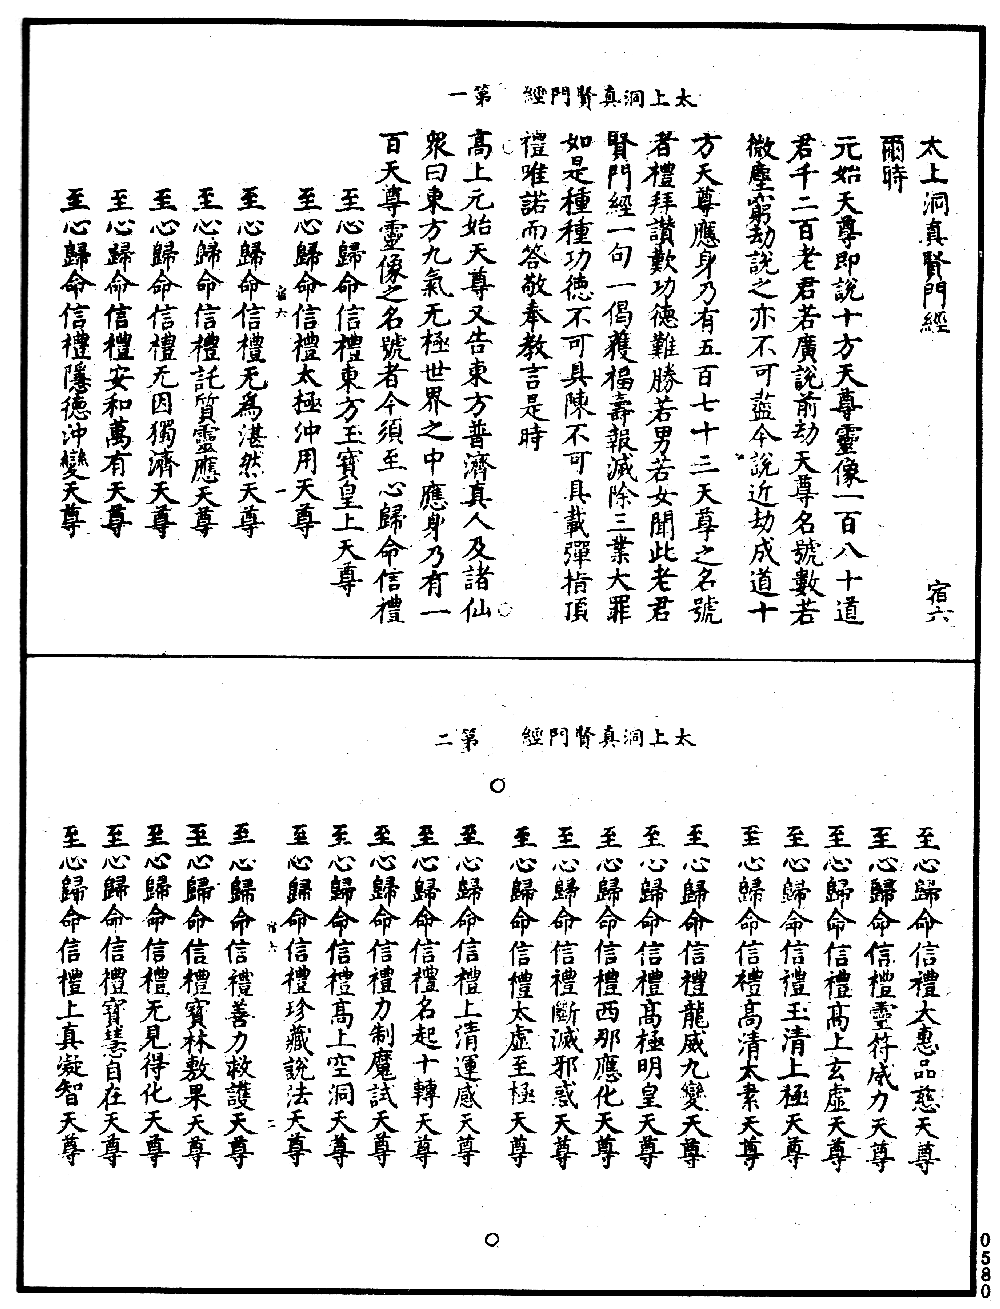 太上洞真賢門經　第一
太上洞真賢門經　宿六
爾時
元始天尊即說十方天尊靈像一百八十道
君千二百老君若廣說前劫天尊名號數若
微塵窮劫說之亦不可盡今說近劫成道十
方天尊應身乃有五百七十二天尊之名號
者禮拜讚歎功德難勝若男若女聞此老君
賢門經一句一偈獲福壽報滅除三業大罪
如是種種功德不可具陳不可具載彈指頂
禮唯諾而答敬奉教言是時
高上元始天尊又告東方普濟真人及諸仙
衆曰東方九氣无極世界之中應身乃有一
百天尊靈像之名號者今須至心歸命信禮
至心歸命信禮東方玉寶皇上天尊
至心歸命信禮太極沖用天尊
宿六　一
至心歸命信禮无為湛然天尊
至心歸命信禮託質靈應天尊
至心歸命信禮无因獨濟天尊
至心歸命信禮安和萬有天尊
至心歸命信禮隱德沖變天尊
太上洞真賢門經　第二
至心歸命信禮大惠品慈天尊
至心歸命信禮靈符威力天尊
至心歸命信禮高上玄虛天尊
至心歸命信禮玉清上極天尊
至心歸命信禮高清太素天尊
至心歸命信禮龍威九變天尊
至心歸命信禮高極明皇天尊
至心歸命信禮西那應化天尊
至心歸命信禮斷滅邪惑天尊
至心歸命信禮太虛至極天尊
至心歸命信禮上清運感天尊
至心歸命信禮名起十轉天尊
至心歸命信禮力制魔試天尊
至心歸命信禮高上空洞天尊
至心歸命信禮珍藏說法天尊
宿六　二
至心歸命信禮善力救護天尊
至心歸命信禮寶林敷果天尊
至心歸命信禮无見得化天尊
至心歸命信禮寶慧自在天尊
至心歸命信禮上真凝智天尊
0580